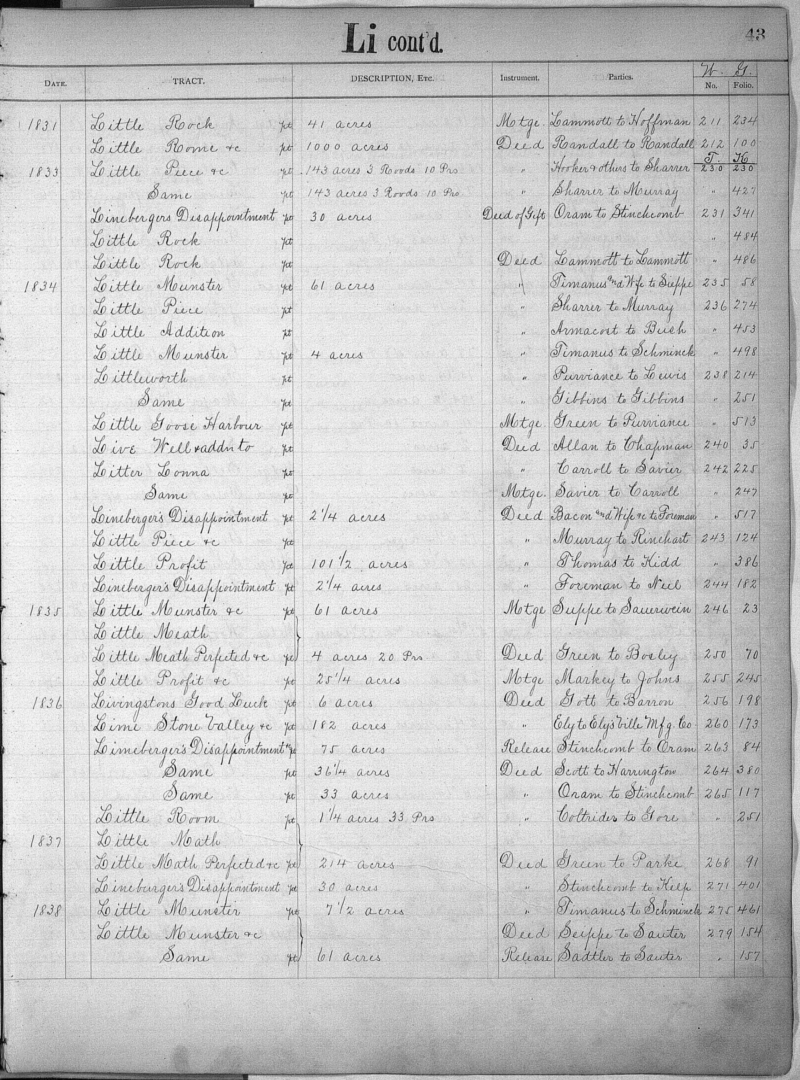 Li cont'd. 43
DATE. TRACT. DESCRIPTION, Etc. Instrument. Parties. W. G. No. Folio.
1831 Little Rock pt 41 acres Mtge. Lammott to Hoffman 211 234
Little Rome &c pt 1000 acres Deed Randall to Randall 212 100
T. K.
1833 Little Piece &c pt 143 acres 3 Roods 10 Prs " Hooker & others to Sharrer 230 230
Same pt 143 acres 3 Roods 10 Prs " Sharrer to Murray " 427
Lineberger's Disappointment pt 30 acres Deed of Gift Oram to Stinchcomb 231 341
Little Rock pt " 484
Little Rock pt Deed Lammott to Lammott " 486
1834 Little Munster pt 61 acres " Timanus and Wife to Suppe 235 58
Little Piece pt " Sharrer to Murray 236 274
Little Addition pt " Armacost to Bush " 453
Little Munster pt 4 acres " Timanus to Schminck " 498
Littleworth pt " Purviance to Lewis 238 214
Same pt " Gibbins to Gibbins " 251
Little Goose Harbour pt Mtge. Green to Purviance " 513
Live Well & addn to pt Deed Allan to Chapman 240 35
Litter Lonna pt " Carroll to Savier 242 225
Same pt Mtge. Savier to Carroll " 247
Lineberger's Disappointment pt 2 1/4 acres Deed Bacon and Wife &c to Foreman " 517
Little Piece &c pt " Murray to Rinehart 243 124
Little Profit pt 101 1/2 acres " Thomas to Kidd " 386
Lineberger's Disappointment pt 2 1/4 acres " Foreman to Neil 244 182
1835 Little Munster &c pt 61 acres Mtge Suppe to Sauerwein 246 23
Little Meath
Little Meath Perfected &c pt 4 acres 20 Prs Deed Green to Bosley 250 70
Little Profit &c pt 25 1/4 acres Mtge Markey to Johns 255 245
1836 Livingstons Good Luck pt 6 acres Deed Gott to Barron 256 198
Lime Stone Valley &c pt 182 acres " Ely to Elys'ville Mfg. Co 260 173
Limeberger's Disappointment &c pt 75 acres Release Stinchcomb to Oram 263 84
Same pt 36 1/4 acres Deed Scott to Harrington 264 380
Same pt 33 acres " Oram to Stinchcomb 265 117
Little Room pt 1 1/4 acres 33 Prs " Coltrider to Gore " 251
1837 Little Math
Little Math Perfected &c pt 214 acres Deed Green to Parke 268 91
Lineburger's Disappointment pt 30 acres " Stinchcomb to Kelp 271 401
1838 Little Munster pt 7 1/2 acres " Timanus to Schminck 275 461
Little Munster &c Deed Seippe to Sauter 279 154
Same pt 61 acres Release Sadtler to Sauter " 157